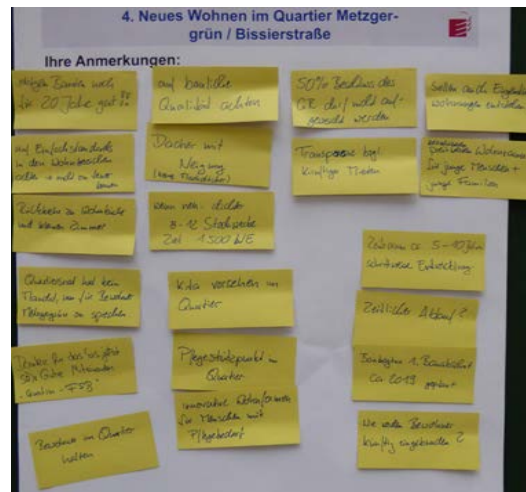 4. Neues Wohnen im Quartier Metzger-
grün / Bissierstraße
Ihre Anmerkungen:
noch
für 20 Jahre gut !!
auf bauliche
Qualität achten
50% Beschluss des
GR darf nicht auf-
geweicht werden
sollen auch
wohnungen entstehen
auf Einfachstandards
in den
Dächer mit
Neigung
(keine Flachdächer)
Transparenz bzgl.
künftiger Mieten
für junge Menschen +
junge Familien
Rückkehr zu
mit kleinen Zimmer
wenn neu - dichter
8-12 Stockwerke
Ziel 1500 WE
Zeitraum ca. 5-10 Jahre
schrittweise Entwicklung
Quartiersrat hat kein
Mandat, um für Bewohner
Metzgergrün zu sprechen
Kita vorsehen im
Quartier
Zeitlicher Ablauf ?
Danke für das
Gute Miteinander
Pflegestützpunkt im
Quartier
Baubeginn 1. Bauabschnitt
ca. 2019 geplant
Bewohner im Quartier
halten
innovative Wohnformen
für Menschen mit
Pflegebedarf
Wie werden Bewohner
künftig eingebunden ?